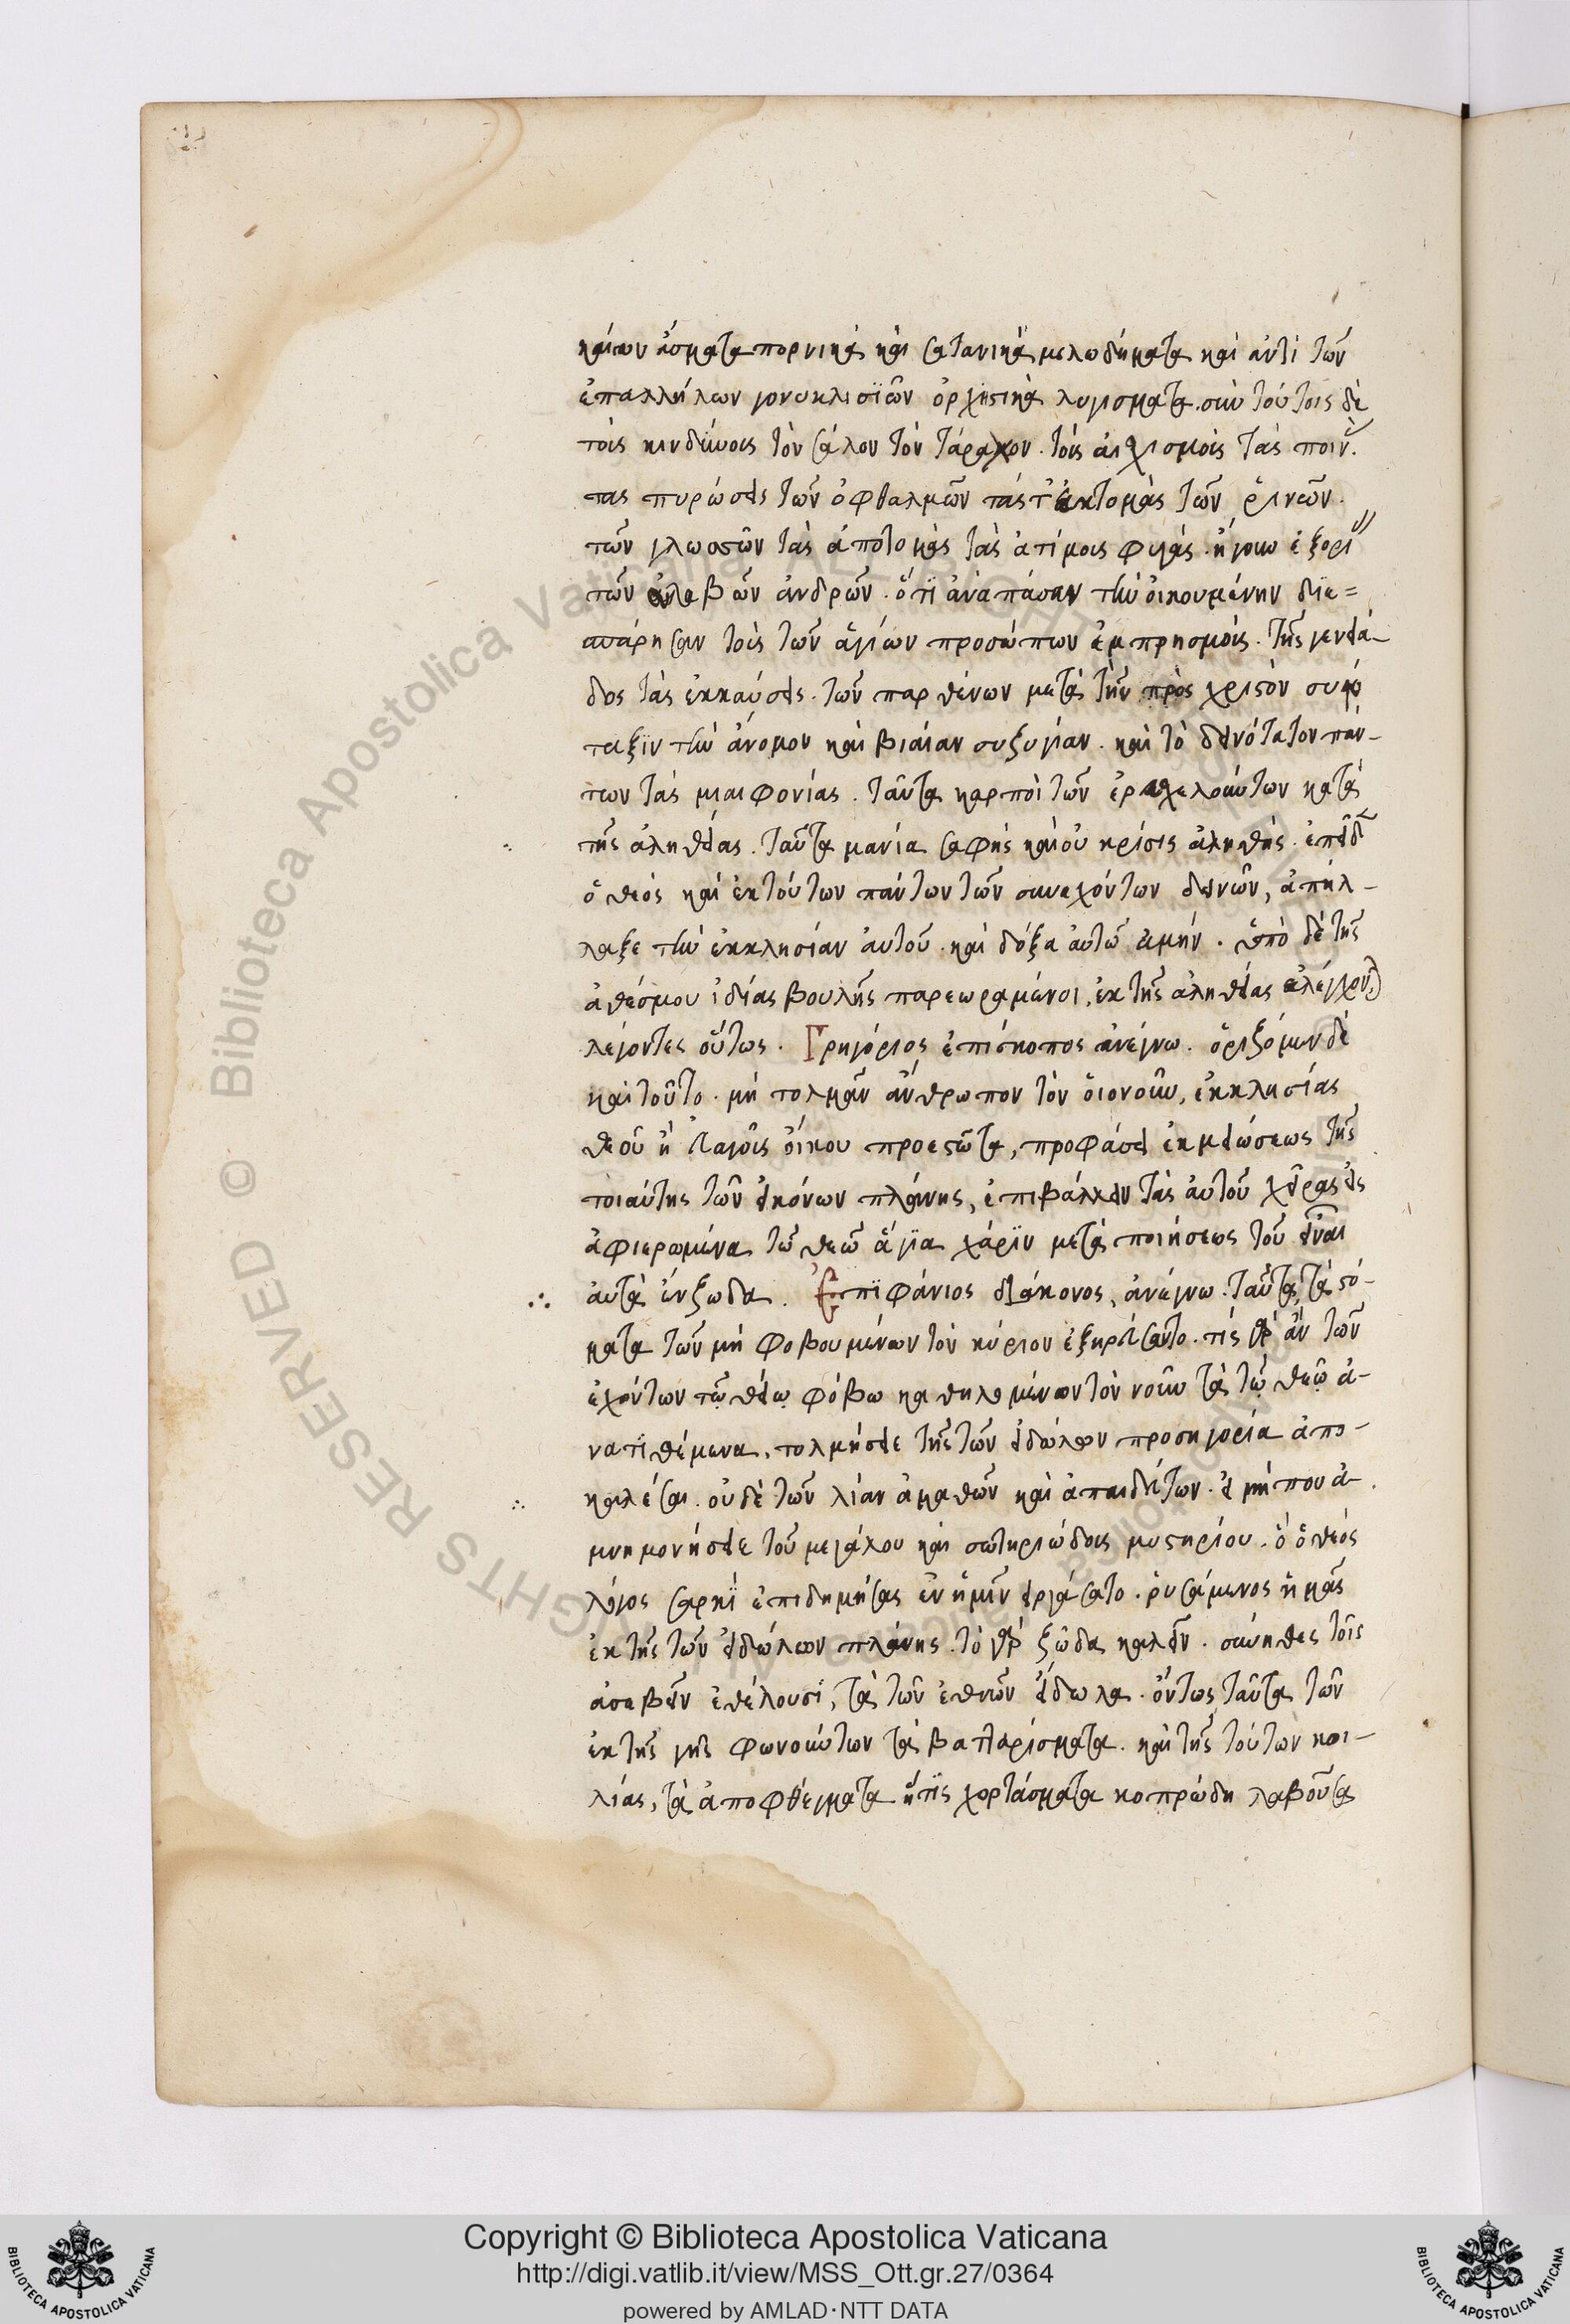 καίων ἄσματα πορνικὰ καὶ σατανικὰ μελωδήματα καὶ ἀντὶ τῶν
ἐπαλλήλων γονυκλισϊῶν ὀρχηστικὰ λυγισματα. σὺν τούτοις δὲ
τοῖς κινδύνοις τὸν σάλον τὸν τάραχον. τοῖς αἰκισμοῖς τὰς
τας πυρώσεις τῶν ὀφθαλμῶν τάς τ' ἐκτομὰς τῶν ῥινεῶν.
τῶν γλωσσῶν τὰς ἀποτομὰς τὰς ἀτίμους φυγάς. ἤγουν
τῶν ἀνδρῶν. ὅτϊ ἀνὰ πάσαν τὴν οἰκουμένην διε=
σπάρησαν τοῖς τῶν ἁγίων προσώπων ἐμπρησμοῖς. τῆς γενειά-
δος τὰς ἐκκαύσεις. τῶν παρθένων μετὰ τὴν πρὸς χριστὸν
ταξϊν τὴν ἄνομον καὶ βιαίαν συζυγίαν. καὶ τὸ δεινότατον πάν-
των τὰς μιαιφονίας. ταῦτα καρποὶ τῶν κατὰ
τῆς ἀληθείας. ταῦτα μανία σαφὴς καὶ οὐ κρίσις ἀληθής.
ὁ θεὸς καὶ ἐκ τούτων πάντων τῶν συνεχόντων δεινῶν, ἀπήλ-
λαξε τὴν ἐκκλησίαν ἀυτοῦ. καὶ δόξα ἀυτῶ ἀμήν. ὑπὸ δὲ τῆς
ἀθέσμου ἰδίας βουλῆς παρεωραμένοι, ἐκ τῆς ἀληθείας
λέγοντες οὕτως. Γρηγόριος ἐπίσκοπος ἀνέγνω. ὁριζόμεν δὲ
καὶ τοῦτο. μὴ τολμᾶν ἄνθρωπον τὸν ὁιονοῦν, ἐκκλησίας
θεοῦ ἢ εὐαγοῦς ὄικου προεστῶτα, προφάσει ἐκμειώσεως τῆς
τοιαύτης τῶν εἰκόνων πλάνης, ἐπιβάλλειν τὰς ἀυτοῦ χεῖρας εἰς
ἀφιερωμένα τῶ θεῶ ἅγια χάρϊν μετὰ ποιήσεως τοῦ εἶναι
ἀυτὰ ἔνζωδα. Ἐπϊφάνιος διάκονος, ἀνέγνω. ταῦτα, τὰ στό-
ματα τῶν μὴ φοβουμένων τὸν κύριον ἐξηρεύξαντο. τίς γὰρ ἂν τῶν
ἐχόντων τῷ θείῳ φόβω καθηλωμένον τὸν νοῦν τὰ τῷ θεῷ ἀ-
νατϊθέμενα, τολμήσειε τῇ τῶν εἰδώλων προσηγορία ἀπο-
καλέσαι. οὐδὲ τῶν λίαν ἀμαθῶν καὶ ἀπαιδεύτων. εἰ μὴ που ἀ-
μνημονήσειε τοῦ μεγάλου καὶ σωτηριώδους μυστηρίου. ὃ ὁ θεὸς
λόγος σαρκῒ ἐπιδημήσας ἐν ἡμῖν εἰργάσατο. ῥυσάμενος ἡμᾶς
ἐκ τῆς τῶν εἰδώλων πλάνης. τὸ γὰρ ζῶδα καλεῖν. σύνηθες τοῖς
ἀσεβεῖν ἐθέλουσϊ, τὰ τῶν ἐθνῶν εἴδωλα. ὄντως ταῦτα τῶν
ἐκ τῆς γῆς φωνούντων τὰ βατταρίσματα. καὶ τῆς τούτων κοι-
λίας, τὰ ἀποφθέγματα ἥτϊς χορτάσματα κοπρώδη λαβοῦσα